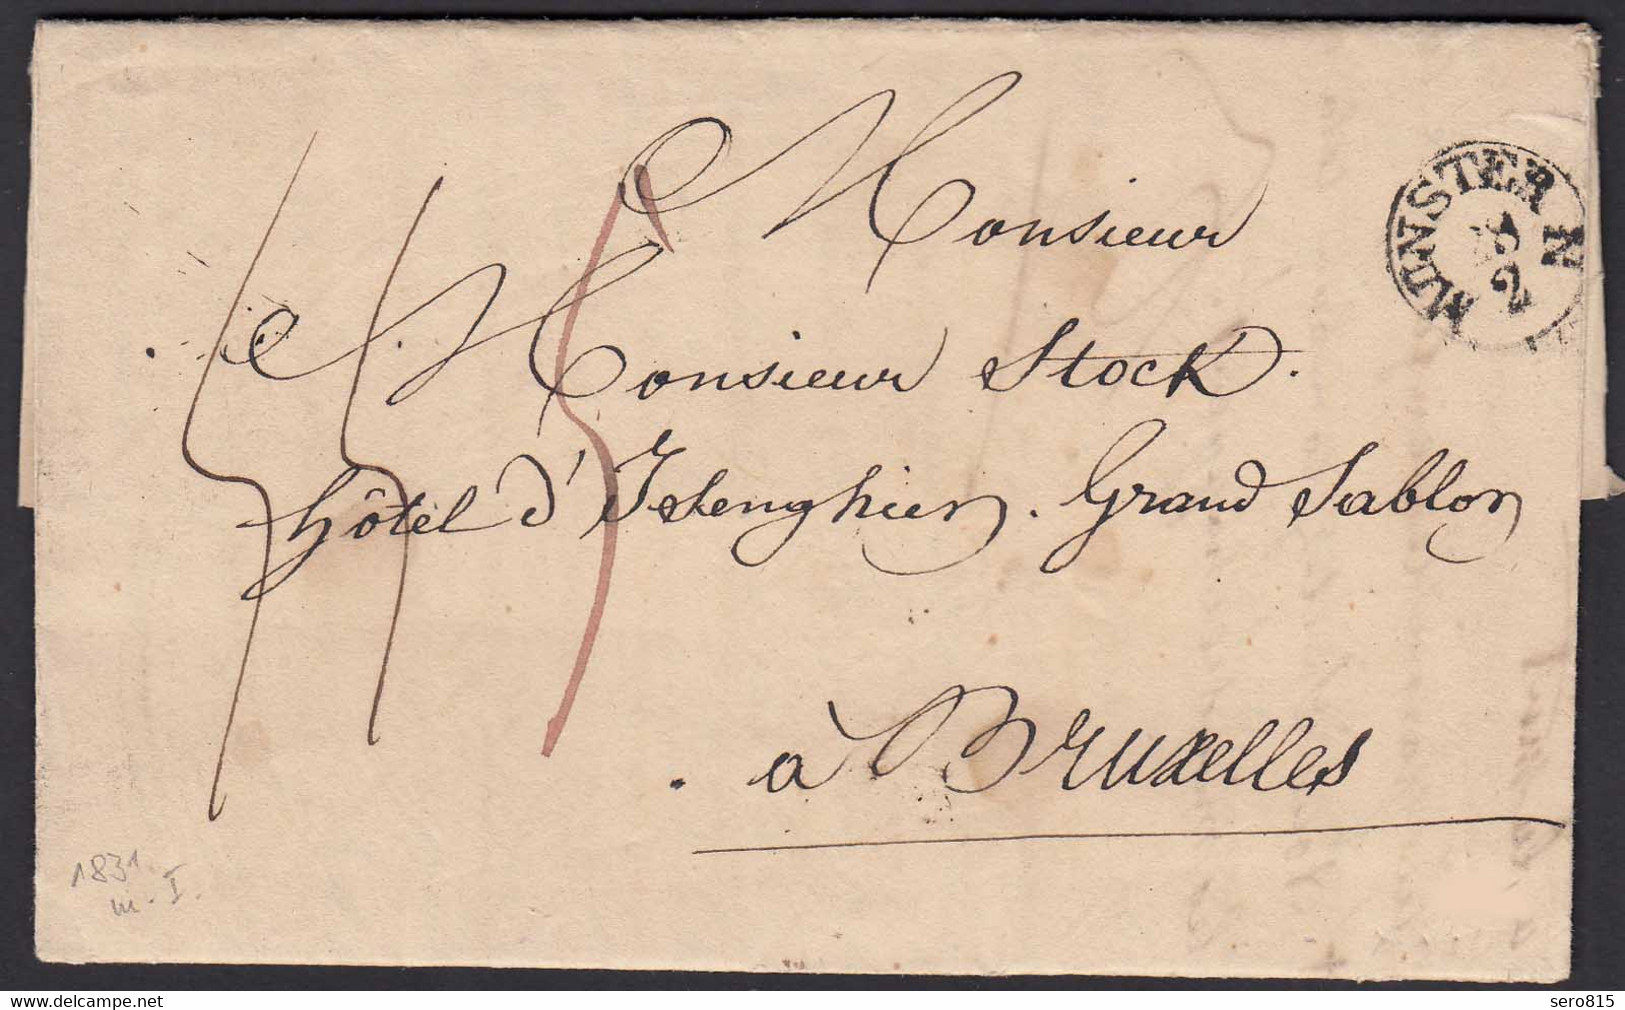 Monsieur
Monsieur Stock.
hôtel d'Isenghien. Grand Sablon
à Bruxelles
MUNSTER N
1831
m. I.
www.delcampe.net
sero815